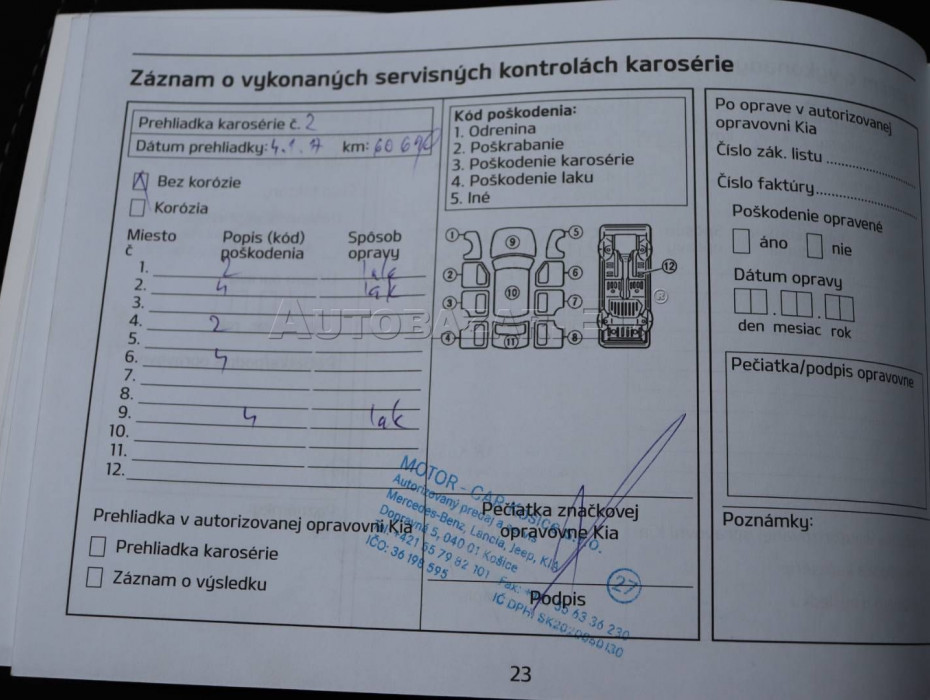 Záznam o vykonaných servisných kontrolách karosérie
Prehliadka karosérie č. 2
Dátum prehliadky: 4.1.17 km: 60 690
Bez korózie
Korózia
Miesto č Popis (kód) poškodenia Spôsob opravy
1. 2 lak
2. 4 lak
3.
4. 2
5.
6. 4
7.
8.
9. 4 lak
10.
11.
12.
Prehliadka v autorizovanej opravovni Kia
Prehliadka karosérie
Záznam o výsledku
Kód poškodenia:
1. Odrenina
2. Poškrabanie
3. Poškodenie karosérie
4. Poškodenie laku
5. Iné
1 9 5
2 6 12
3 10 7
4 11 8
AUTOBAZAR
MOTOR - CAR KOŠICE s.r.o.
Autorizovaný predaj a
Mercedes-Benz, Lancia, Jeep, KIA
Dopravná 5, 040 01 Košice
Tel.: +421 55 79 82 101 Fax: 55 63 36 230
IČO: 36 198 595 IČ DPH: SK2020050130
27
Pečiatka značkovej
opravovne Kia
Podpis
Po oprave v autorizovanej
opravovni Kia
Číslo zák. listu
Číslo faktúry
Poškodenie opravené
áno nie
Dátum opravy
den mesiac rok
Pečiatka/podpis opravovne
Poznámky:
23